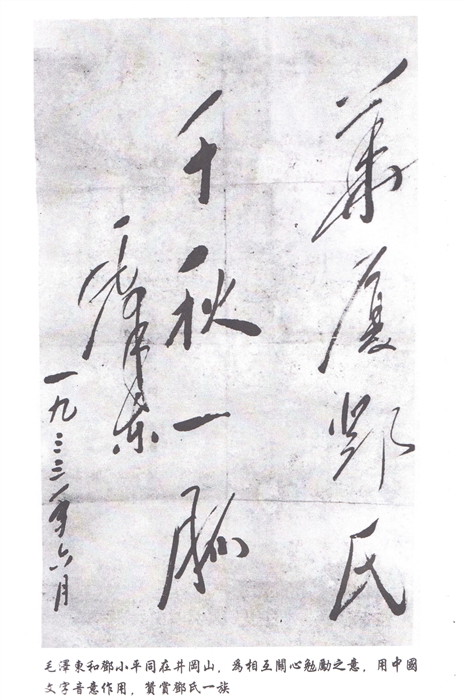 華厦鄧氏
千秋一脈
毛澤東
一九三三年六月
毛澤東和鄧小平同在井岡山，為相互關心勉勵之意，用中國
文字音意作用，贊賞鄧氏一族